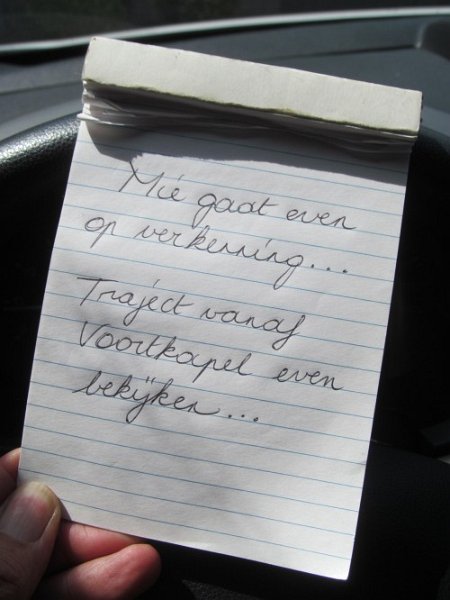 Mie gaat even
op verkenning...
Traject vanaf
Voortkapel even
bekijken...